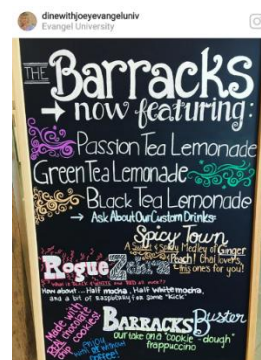 dinewithjoeyevangeluniv
Evangel University
THE Barracks
→ now featuring:
Passion Tea Lemonade
Green Tea Lemonade
Black Tea Lemonade
→ Ask About Our Custom Drinks
Spicy Town
A Sweet & Spicy Medley of Ginger
Peach! Chai lovers,
this ones for you!
Rogue Zebra
WHAT IS BLACK & WHITE AND RED all over?
How about... Half mocha, Half white mocha,
and a bit of raspberry for some "kick"
Made with
REAL chocolate
chip cookies!
BARRACKS Buster
our take on a "cookie-dough"
frappuccino